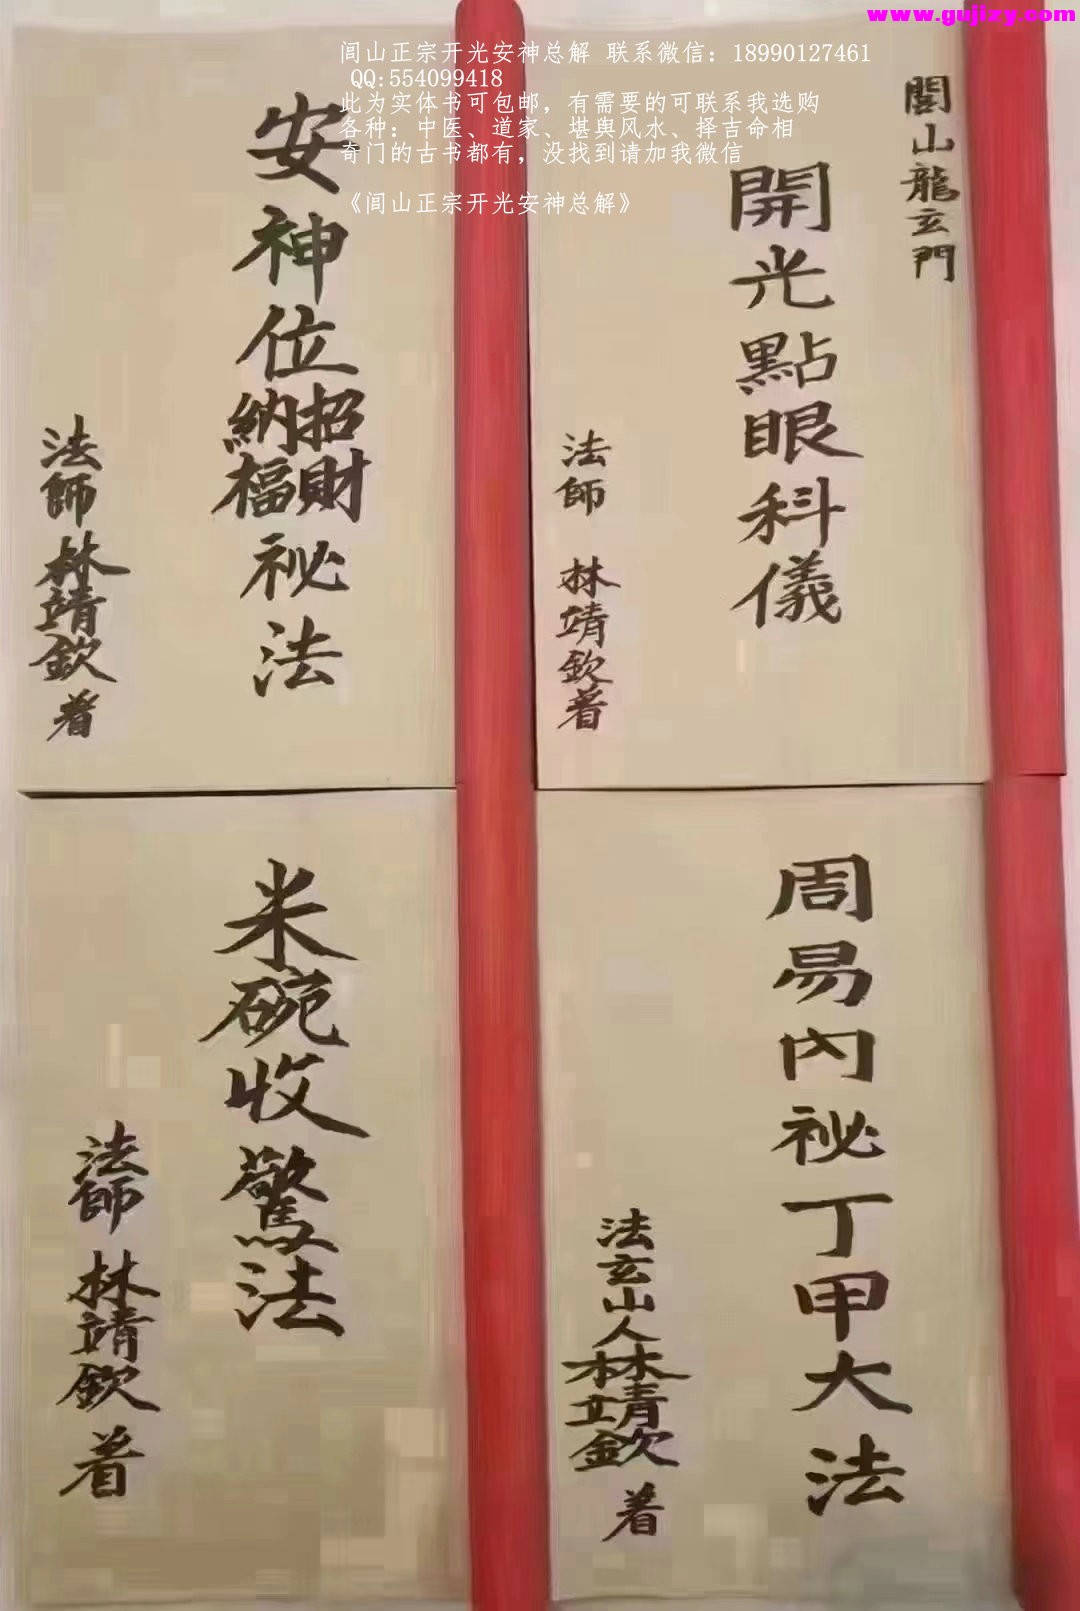 www.gujizy.com
闾山正宗开光安神总解 联系微信：18990127461
QQ:554099418
此为实体书可包邮，有需要的可联系我选购
各种：中医、道家、堪舆风水、择吉命相
奇门的古书都有，没找到请加我微信
《闾山正宗开光安神总解》
閭山龍玄門
開光點眼科儀
法師 林靖欽着
安神位招財納福祕法
法師林靖欽着
周易內祕丁甲大法
法玄山人林靖欽 着
米碗收驚法
法師 林靖欽 着